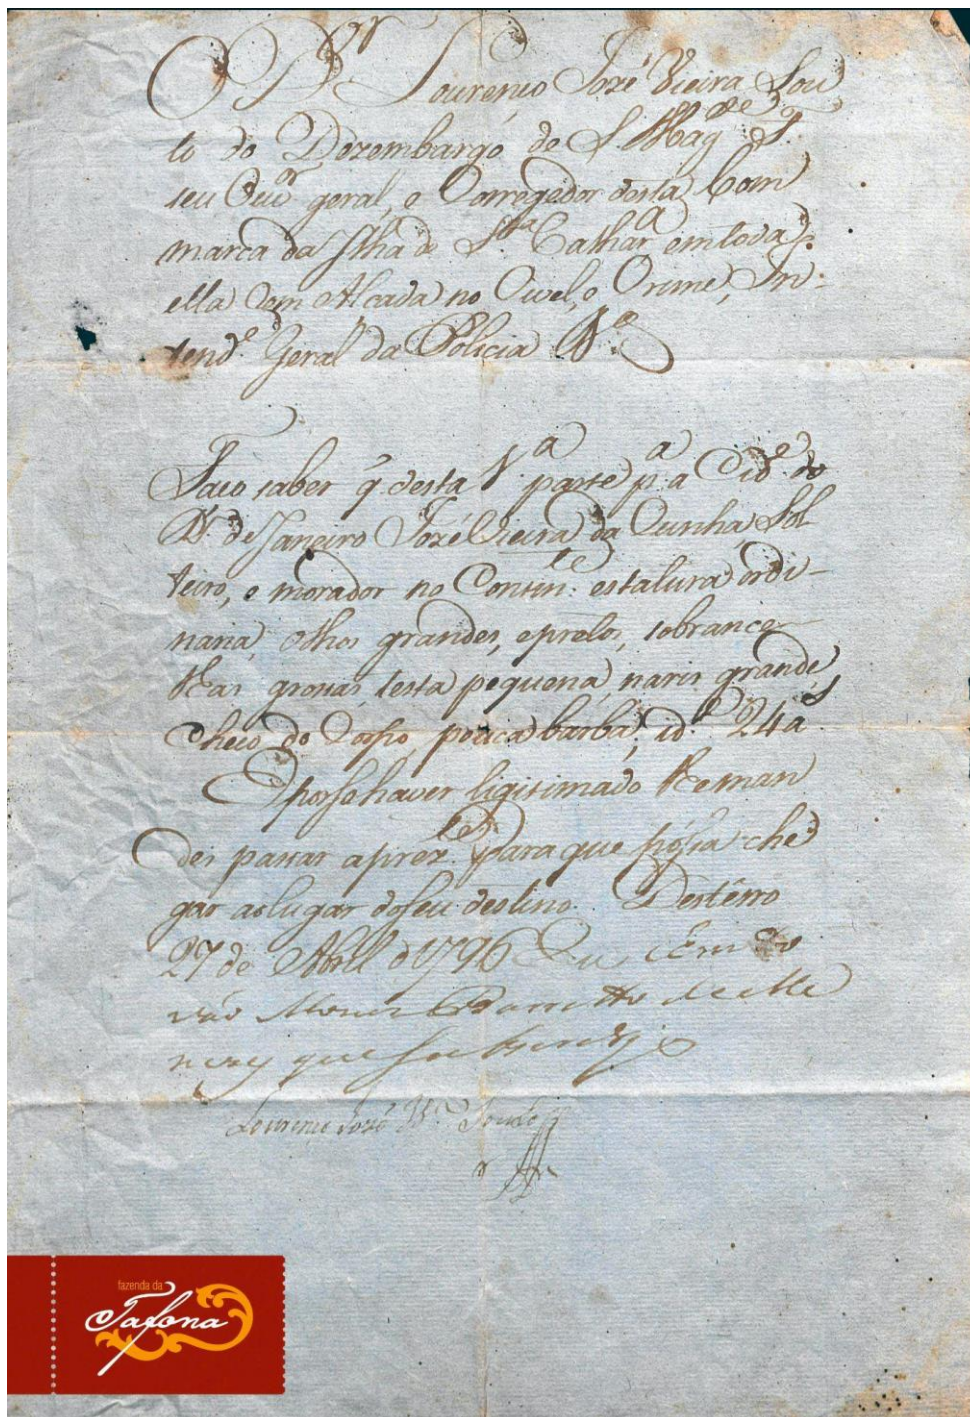 O D.or Lourenço José Vieira Sou
to do Dezembargo de S. Mag.de F.
seu Ouv.or geral, e Corregedor desta Com
marca da Ilha de S.ta Cathar.a em toda
ella com Alcada no Civel, e Crime, In-
tend.e Geral da Policia &.a
Faco saber q̃ desta V.a parte p.a a Cid.e do
R. de Janeiro José Vieira da Cunha Sol
teiro, e morador no Contin.te estatura ordi-
naria, olhos grandes, e pretos, sobrance-
lhas grossas, testa pequena, naris grande,
cheio do Corpo, pouca barba, id.e 24 a.s
E por se haver ligitimado lhe man
dei passar a prez.te para que possa che
gar ao lugar do seu destino. Destêrro
27 de Abril d 1796 Eu
Barretto de Me
nezes que
Lourenço José V.ra Souto
fazenda da
Tafona